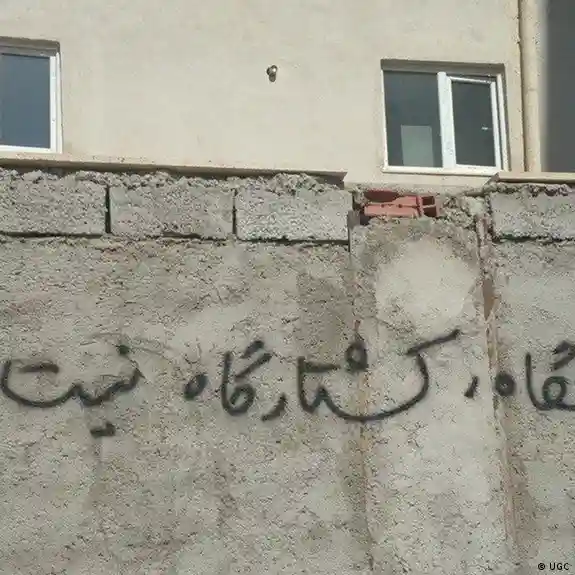 گاه، کشتارگاه نیست
© UGC